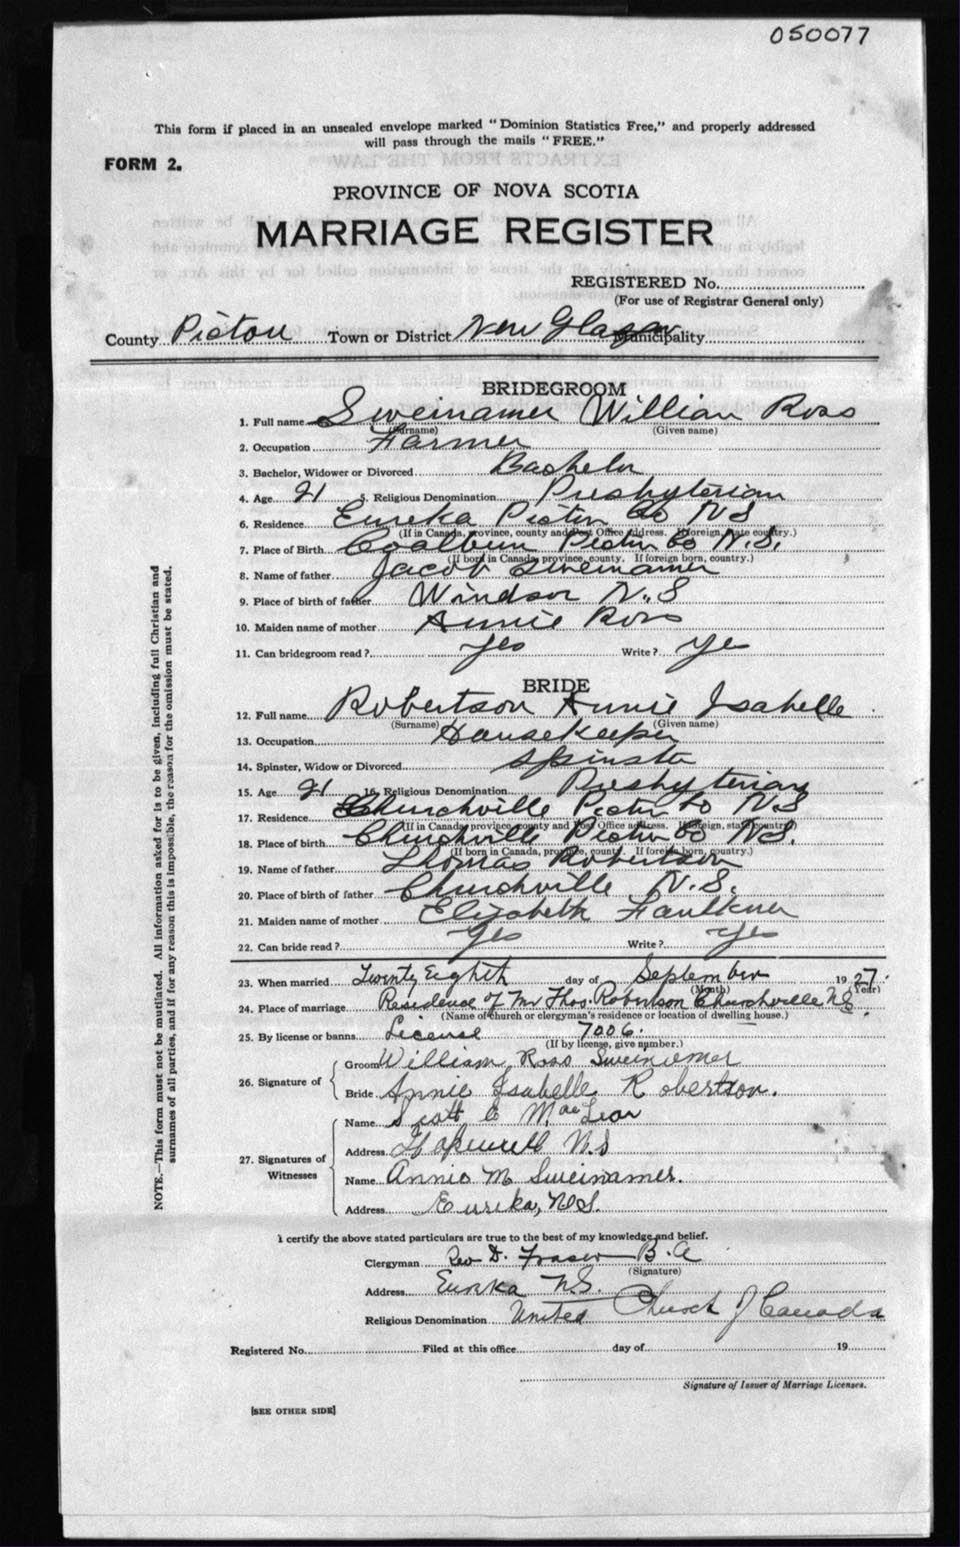 050077
This form if placed in an unsealed envelope marked "Dominion Statistics Free," and properly addressed
will pass through the mails "FREE."
FORM 2.
PROVINCE OF NOVA SCOTIA
MARRIAGE REGISTER
REGISTERED No.
(For use of Registrar General only)
County Pictou Town or District New Glasgow Municipality
BRIDEGROOM
1. Full name Sweinamer William Ross
(Surname) (Given name)
2. Occupation Farmer
3. Bachelor, Widower or Divorced Bachelor
4. Age 21 5. Religious Denomination Presbyterian
6. Residence Eureka Pictou Co N S
(If in Canada, province, county and Post Office address. If foreign, state country.)
7. Place of Birth Coalburn Pictou Co N.S.
(If born in Canada, province, county. If foreign born, country.)
8. Name of father Jacob Sweinamer
9. Place of birth of father Windsor N.S
10. Maiden name of mother Annie Ross
11. Can bridegroom read? yes Write? Yes
BRIDE
12. Full name Robertson Annie Isabelle
(Surname) (Given name)
13. Occupation Housekeeper
14. Spinster, Widow or Divorced Spinster
15. Age 21 16. Religious Denomination Presbyterian
17. Residence Churchville Pictou Co N.S
(If in Canada, province, county and Post Office address. If foreign, state country.)
18. Place of birth Churchville Pictou Co N.S.
(If born in Canada, province, county. If foreign born, country.)
19. Name of father Thomas Robertson
20. Place of birth of father Churchville N.S.
21. Maiden name of mother Elizabeth Faulkner
22. Can bride read? Yes Write? Yes
23. When married Twenty Eighth day of September 1927.
(Month) (Year)
24. Place of marriage Residence of Mr Thos. Robertson Churchville N.S.
(Name of church or clergyman's residence or location of dwelling house.)
25. By license or banns License 7006.
(If by license, give number.)
26. Signature of
Groom William Ross Sweinemer
Bride Annie Isabelle Robertson.
27. Signatures of Witnesses
Name Scott C MacLean
Address Hopewell N.S
Name Annie M Sweinamer.
Address Eureka, N.S.
I certify the above stated particulars are true to the best of my knowledge and belief.
Clergyman Rev D. Fraser B.A
(Signature)
Address Eureka N.S.
Religious Denomination United Church of Canada
Registered No. Filed at this office day of 19
Signature of Issuer of Marriage Licenses.
[SEE OTHER SIDE]
NOTE.—This form must not be mutilated. All information asked for is to be given, including full Christian and
surnames of all parties, and if for any reason this is impossible, the reason for the omission must be stated.